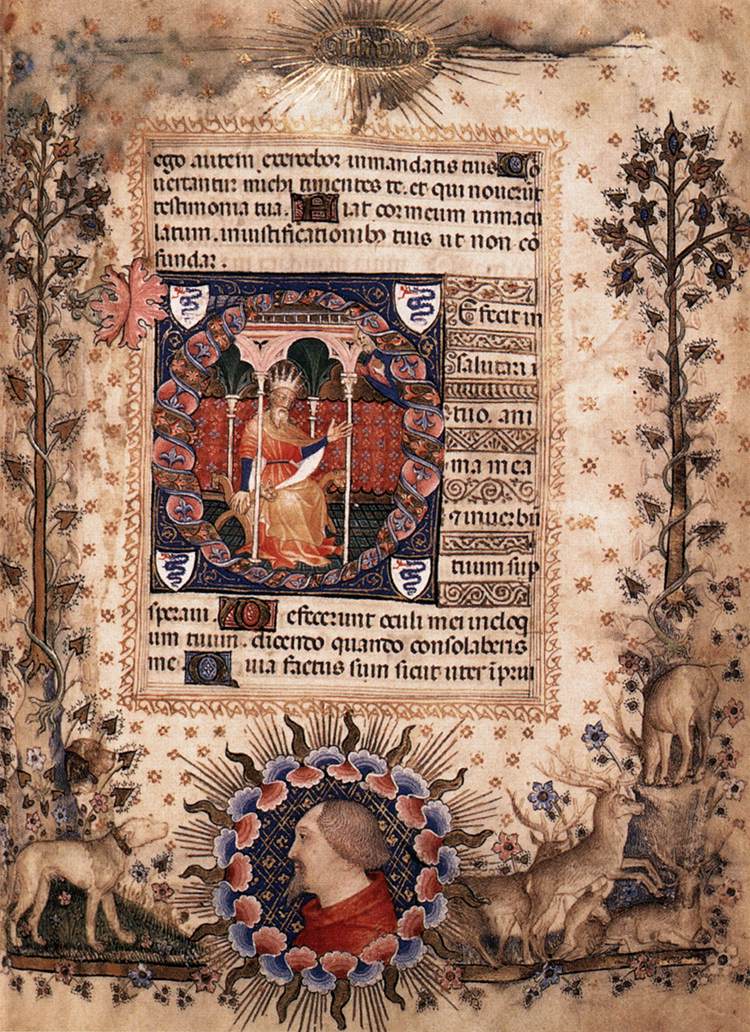 ego autem exercebor in mandatis tuis Cō
uertantur michi timentes te. et qui nouerūt
testimonia tua. Fiat cor meum inmacu
latum. in iustificationibꝯ tuis ut non cō
fundar.
Defecit in
salutari
tuo. ani
ma mea
⁊ in uerbū
tuum sup
speraui. Defecerunt oculi mei in eloq
um tuum. dicendo quando consolaberis
me Quia factus sum sicut uter ī prui